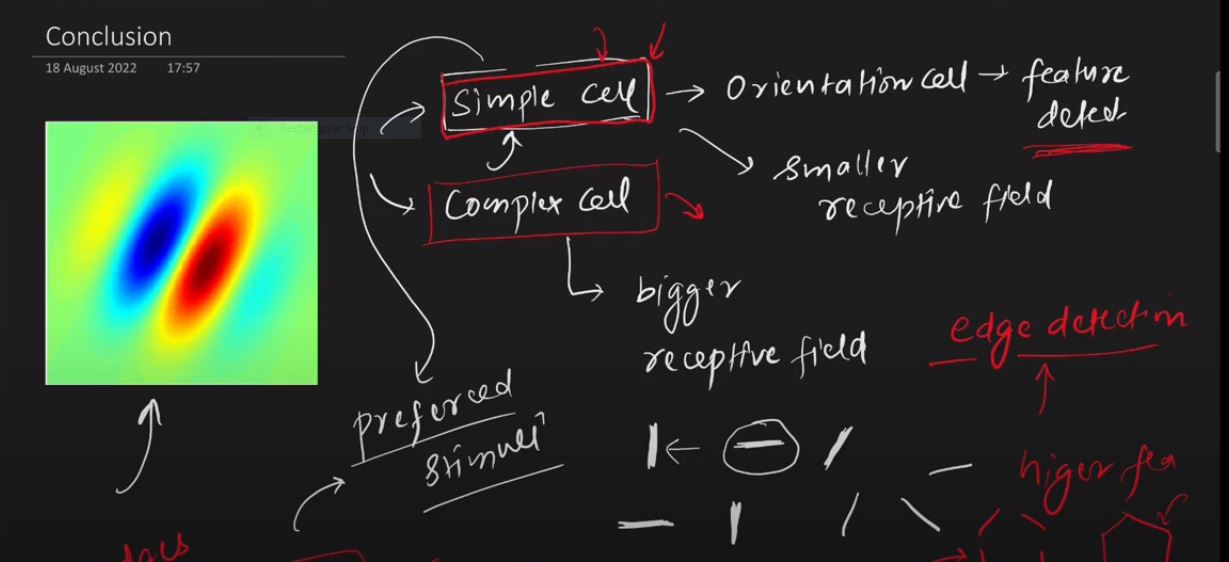 Conclusion
18 August 2022 17:57
Rectangular Snip
Simple Cell → Orientation cell → feature
detect
smaller
receptive field
Complex Cell
bigger
receptive field
edge detection
preferred
stimuli
higer fea